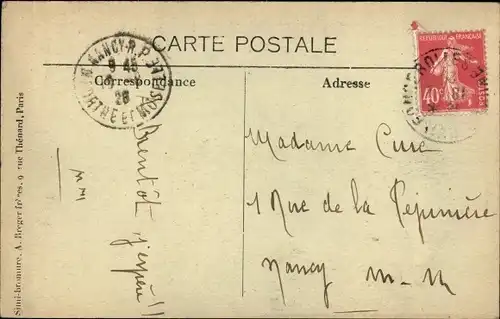 CARTE POSTALE
Correspondance
Adresse
NANCY-R.P.
MEURTHE ET MOSELLE
9 45
26
REPUBLIQUE FRANÇAISE
40c
Madame Cure
1 Rue de la Pépinière
Nancy M-M
A
Bientôt
j'espère!!
Simi-bromure, A. Breger frères, 9 rue Thénard, Paris